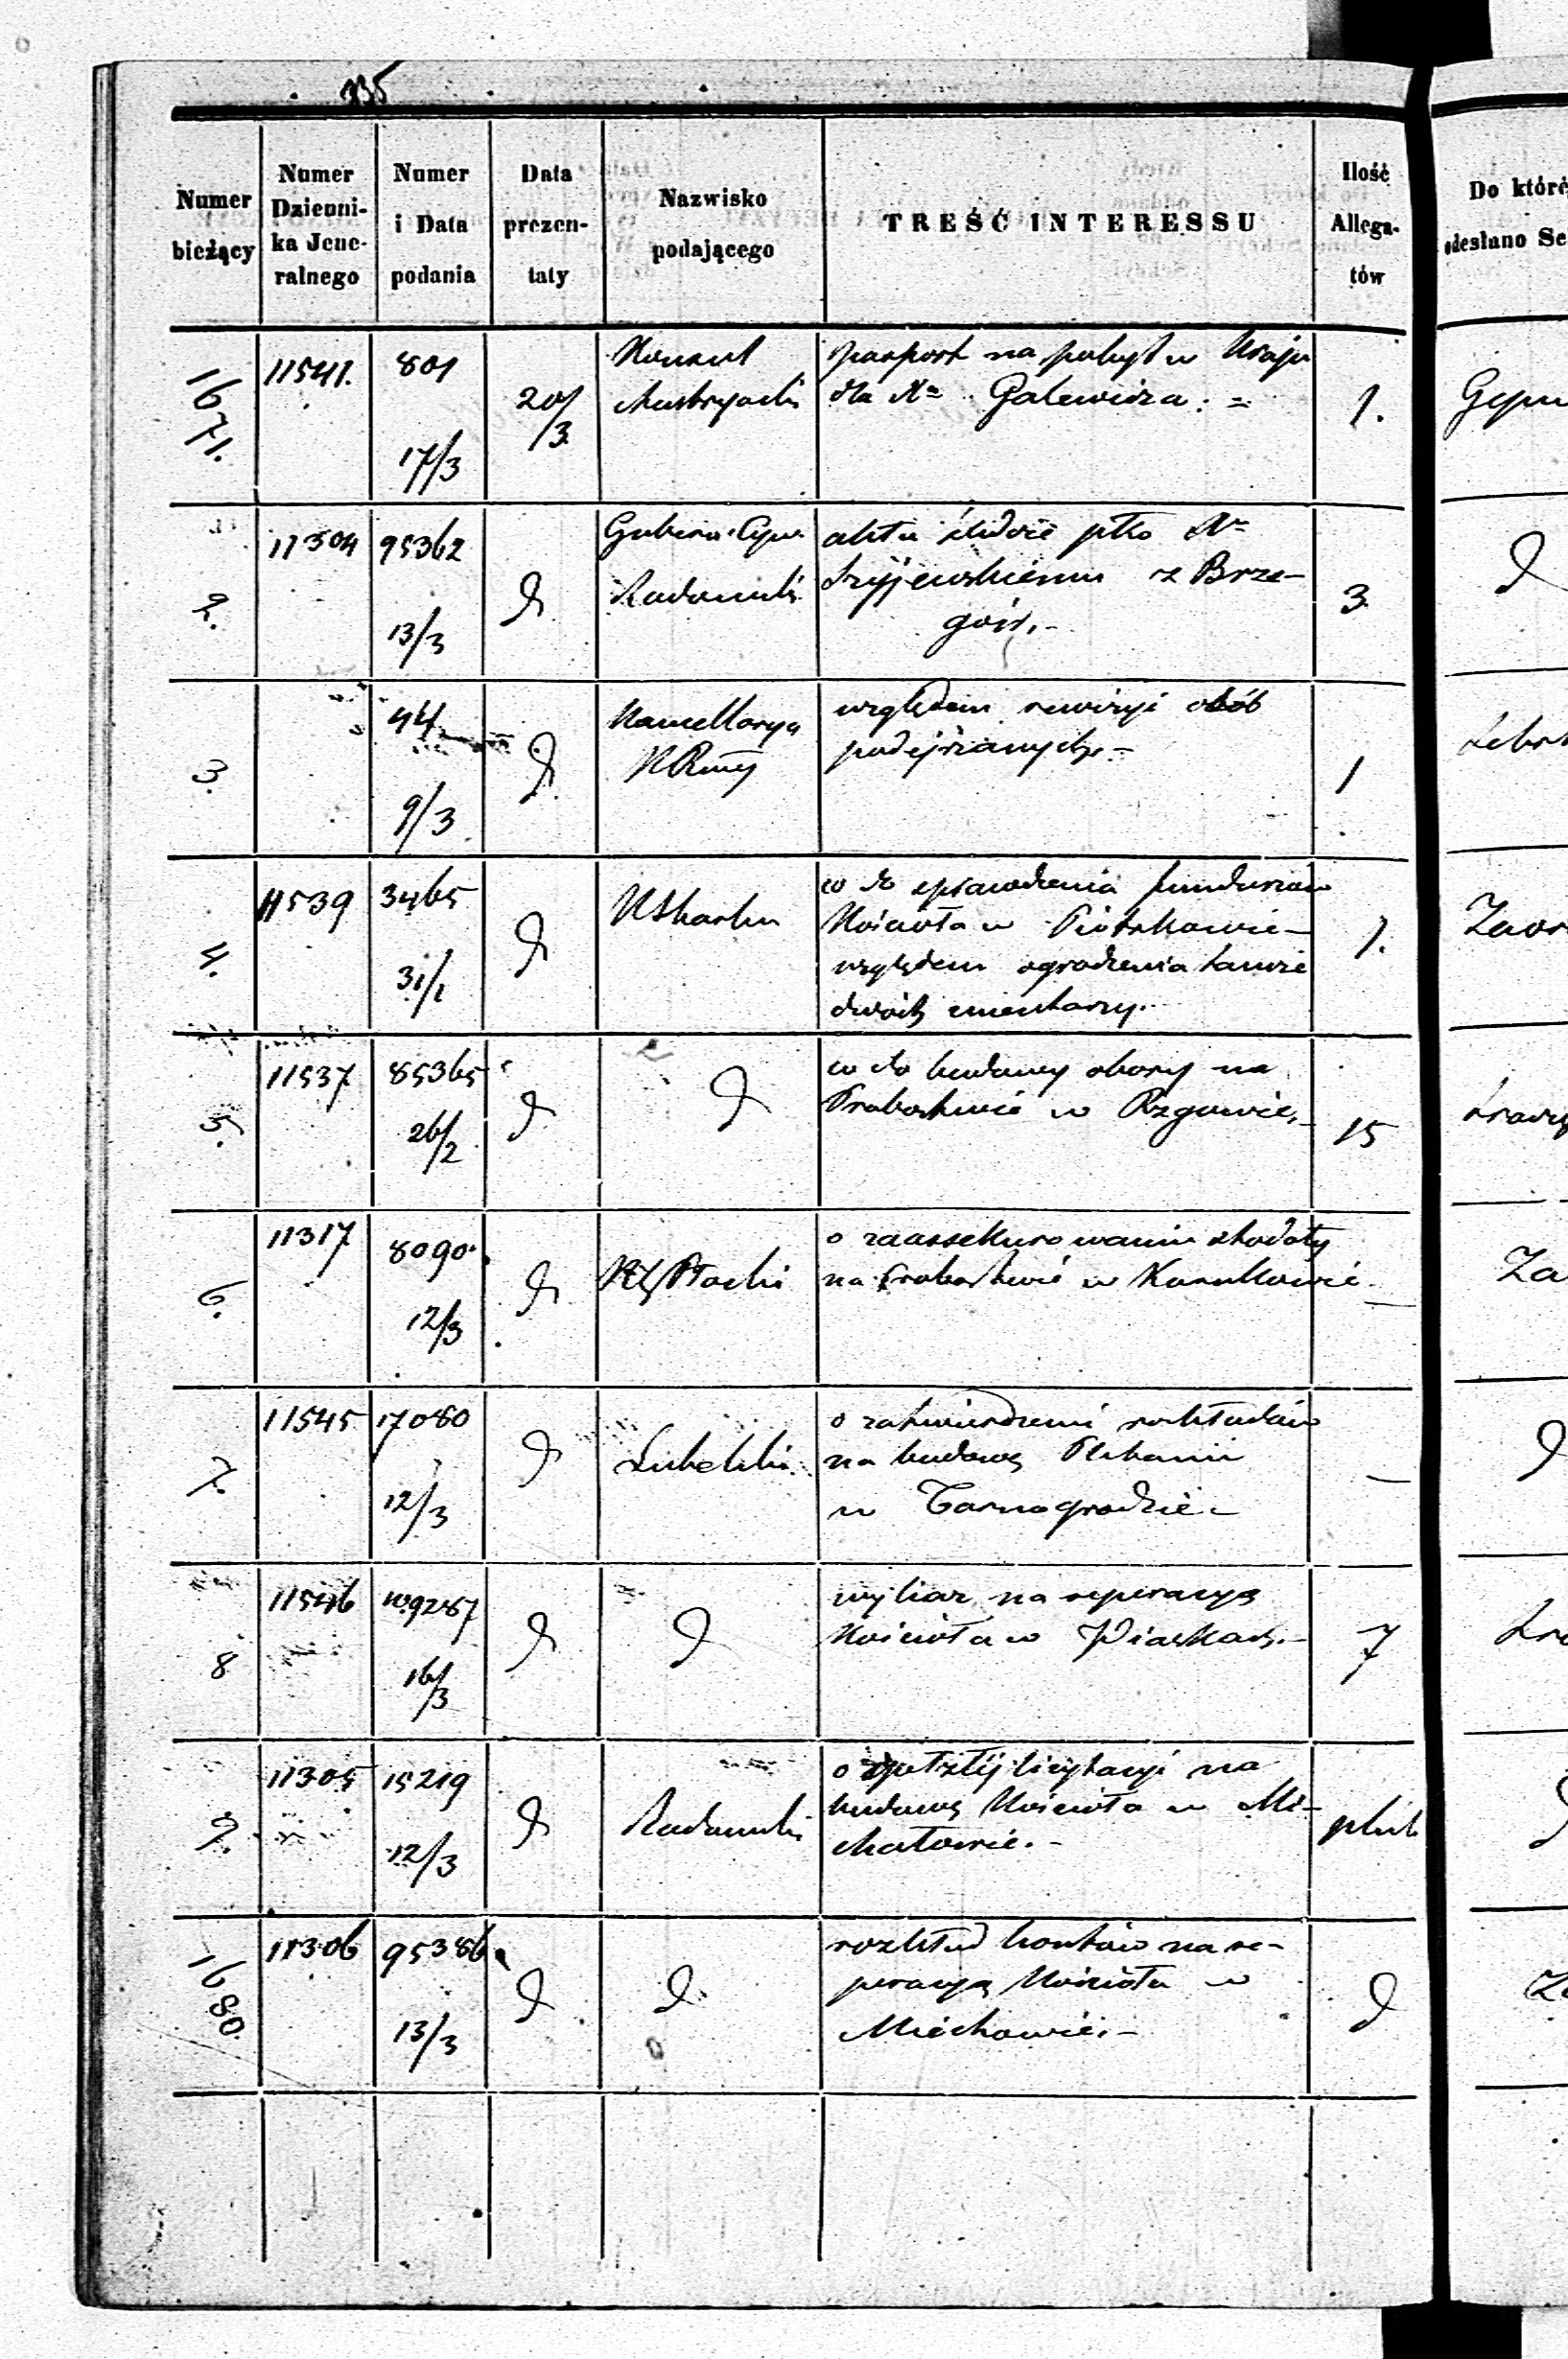 135
Numer bieżący
Numer Dzienni- ka Jene- ralnego
Numer i Data podania
Data prezen- taty
Nazwisko podającego
TREŚĆ INTERESSU
Ilość Allega- tów
Do któré
odesłano Se
1671.
11541.
801
17/3
20/3
Konsul
Austryacki
paszport na pobyt w Kraju
dla Galewicza. =
1.
2.
11304
95362
13/3
d
Gubern. Cyw.
Radomski
akta
z Brze-
gów. -
3
d
3.
44
9/3
d
Kancellarya
względem rewizyi osób
podejźrzanych. =
1
4.
11539
3465
31/1
d
co do funduszów
Kościoła w Piotrkowie -
względem ogrodzenia tamże
dwóch cmentarzy.
1.
5.
11537
85365
26/2
d
d
co do budowy obory na
Probostwie w Rzgowie. -
15
6.
11317
8090
12/3
d
Płocki
o zaassekurowanie stodoły
na Probostwie w
—
Za
7.
11545
17080
12/3
d
Lubelski
o zatwierdzenie rozkładów
na budowę Plebanii
w Tarnogrodzie -
—
d
8
11546
109287
16/3
d
d
wykaz na reperacyę
Kościoła w Piaskach. -
7
9.
11305
15219
12/3
d
Radomski
o licytacyi na
budowę Kościoła w Mi-
chałowie. -
plik
d
1680.
11306
95386
13/3
d
d
rozkład kosztów na re-
peracyą Kościoła w
Miechowie. -
d